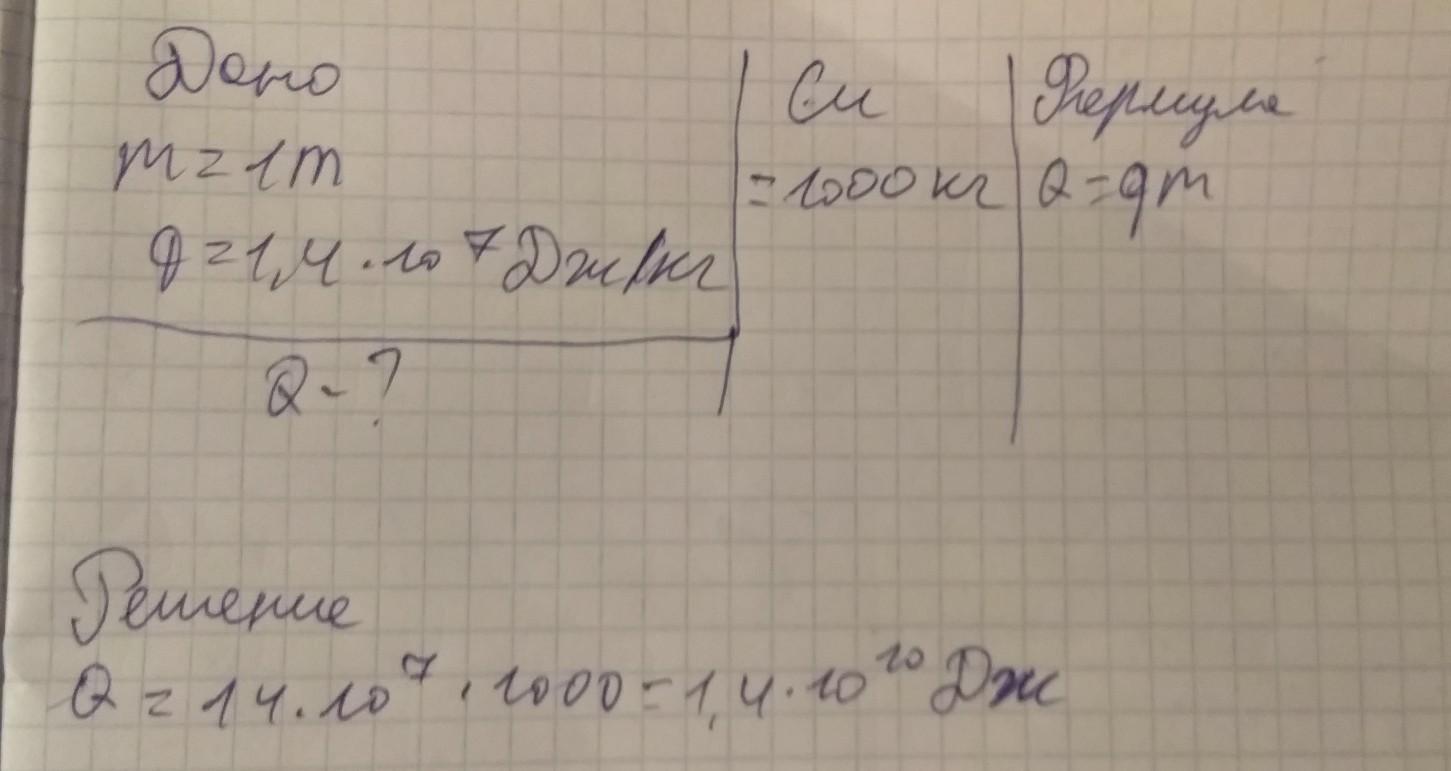 Дано
m=1т
q=1,4·10⁷Дж/кг
Q-?
Си
=1000кг
Формула
Q=qm
Решение
Q=14·10⁷·1000=1,4·10¹⁰Дж